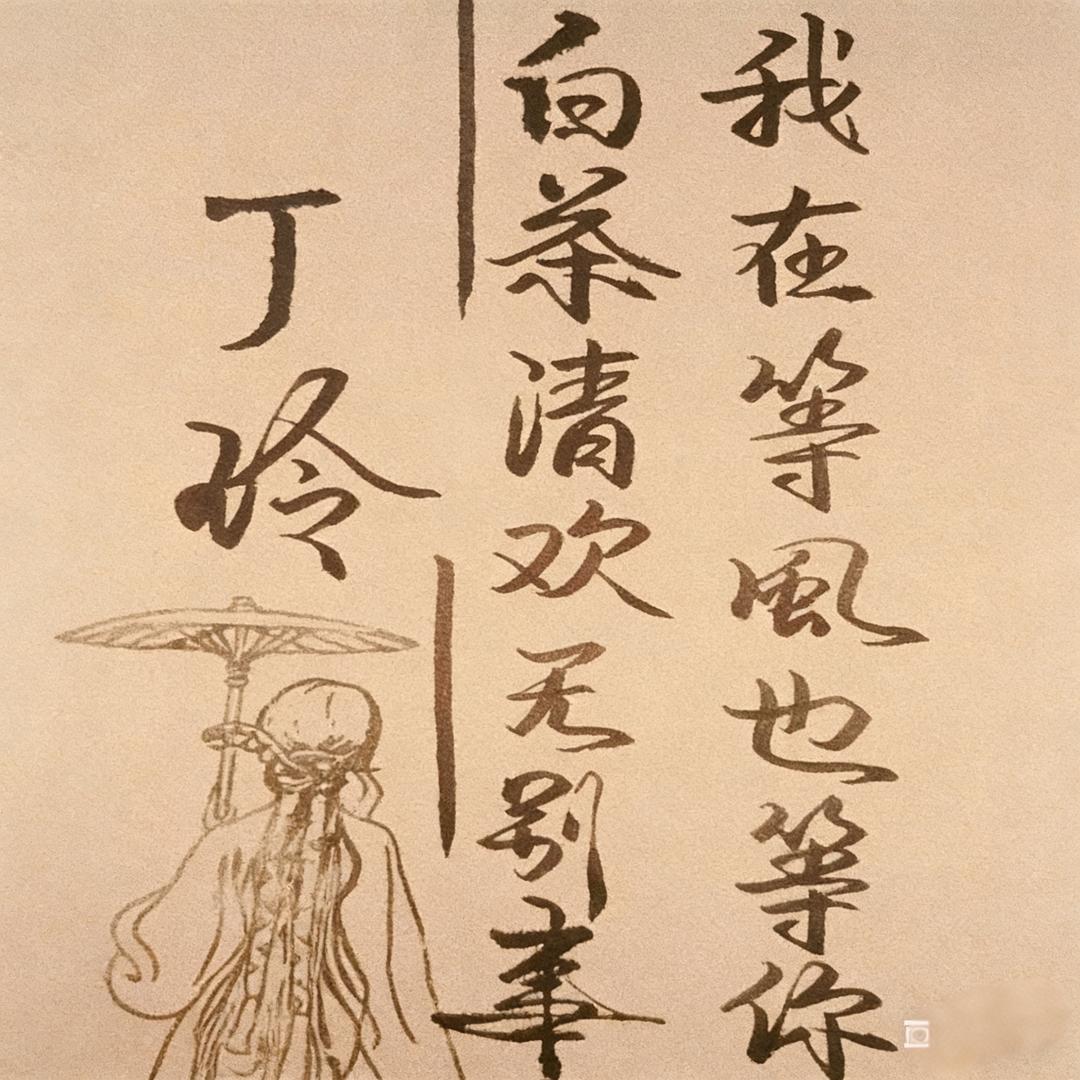 我在等風也等你
白茶清欢无别事
丁玲